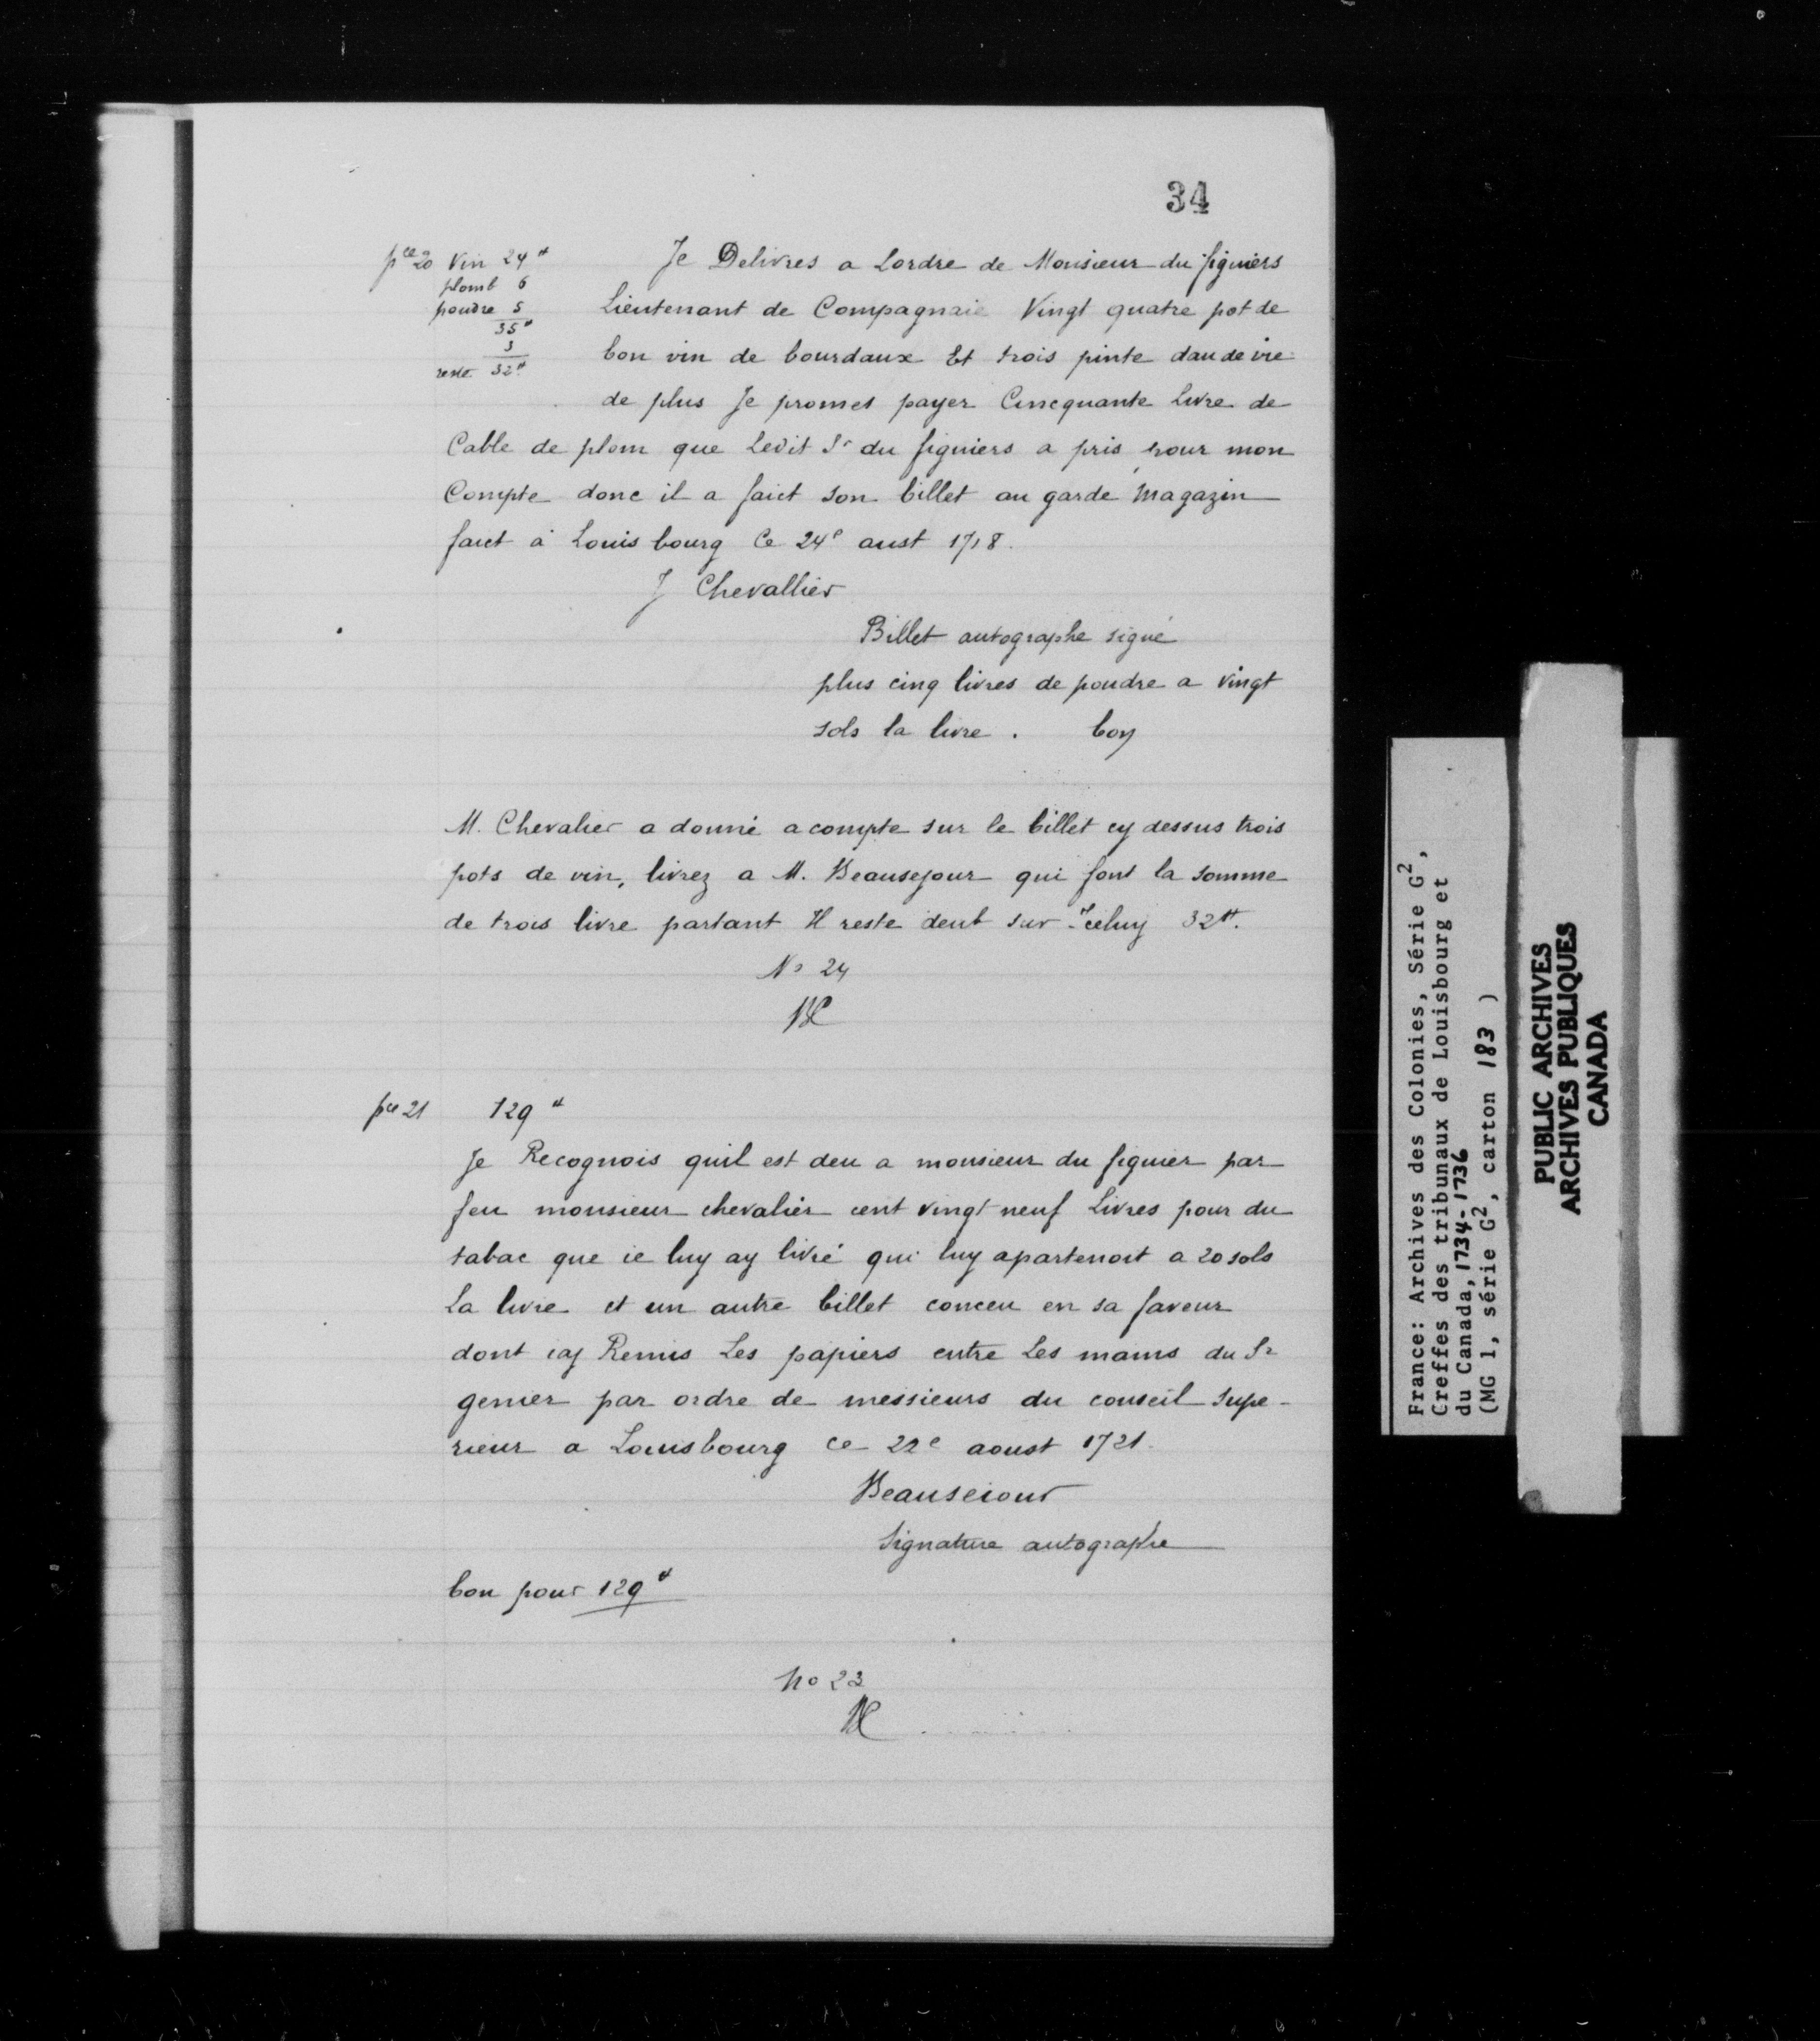 34
pce 20 Vin 24tt
plomb 6
poudre 5
35tt
3
reste 32tt
Je Delivres a Lordre de Monsieur du figuiers
Lieutenant de Compagnaie Vingt quatre pot de
bon vin de bourdaux Et trois pinte dau de vie
de plus Je promet payer Cincquante Livre de
Cable de plom que Ledit Sr du figuiers a pris pour mon
Compte donc il a faict son billet au garde Magazin
faict à Louis bourg Ce 24e aust 1718.
J Chevallier
Billet autographe signé
plus cinq livres de poudre a vingt
sols la livre . bon
M. Chevalier a donné a compte sur le billet cy dessus trois
pots de vin, livrez a M. Beausejour qui font la somme
de trois livre partant Il reste deub sur Iceluy 32tt.
No 24
pce 21 129tt
Je Recognois quil est deu a monsieur du figuier par
feu monsieur chevalier cent vingt neuf Livres pour du
tabac que ie luy ay livré qui luy apartenoit a 20 sols
La livre et un autre billet conceu en sa faveur
dont iay Remis Les papiers entre Les mains du Sr
genier par ordre de messieurs du conseil supe-
rieur a Louisbourg ce 22e aoust 1721.
Beauseiour
Signature autographe
bon pour 129tt
No 23
France: Archives des Colonies, Série G2,
Creffes des tribunaux de Louisbourg et
du Canada, 1734-1736
(MG 1, série G2, carton 183 )
PUBLIC ARCHIVES
ARCHIVES PUBLIQUES
CANADA